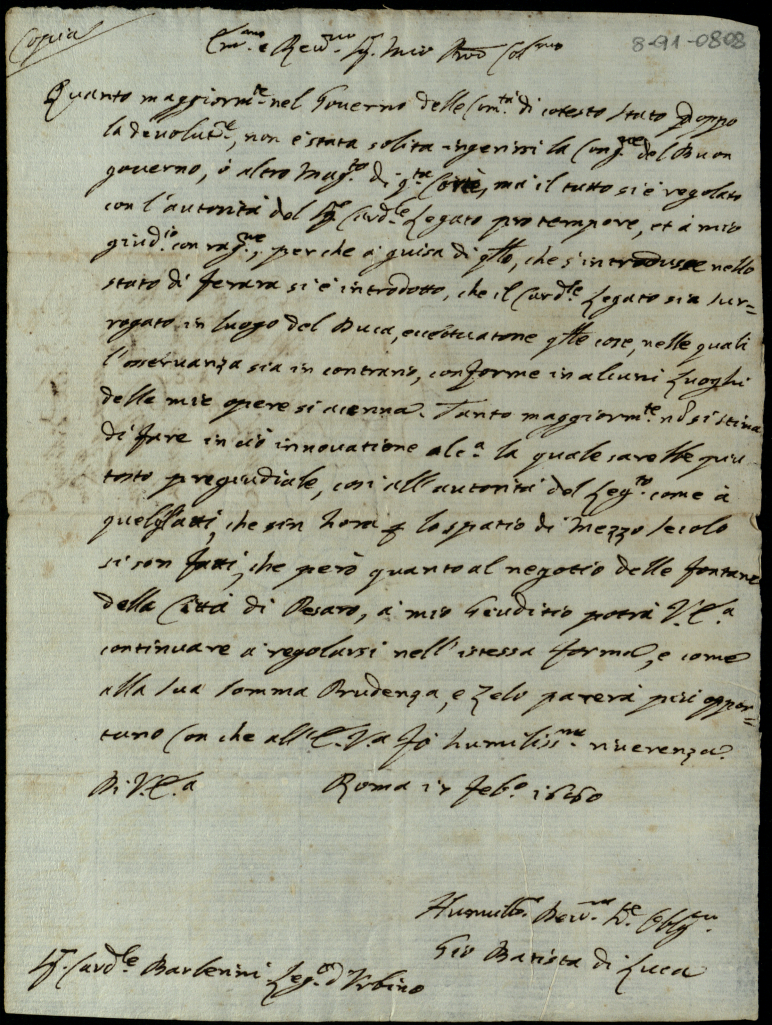 Copia
8-91-0808
Em.mo e Rev.mo Sig. Mio P.ron Col.mo
Quanto maggiorm.te nel Governo delle Com.tà di cotesto stato doppo
la devolut.ne, non è stata solita ingerirsi la Cong.ne del Buon
governo, ò altro Mag.to di q.ta Corte, mà il tutto si è regolato
con l'autorità del Sig. Card.le Legato pro tempore, et à mio
giud.io con rag.ne, perche à guisa di q.llo, che s'introdusse nello
stato di Ferara si è introdotto, che il Card.le Legato sia sur=
rogato in luogo del Duca, eccettuatone q.lle cose, nelle quali
l'osservanza sia in contrario, conforme in alcuni luoghi
delle mie opere si acenna. Tanto maggiorm.te nō si stima
di fare in ciò innovatione alc.a la quale sarebbe piu
tosto pregiudiale, così all'autorità del Leg.to come à
quelli atti, che sin hora p lo spatio di mezzo secolo
si son fatti, che però quanto al negotio delle fontane
della Città di Pesaro, à mio Giuditio potrà V.E.a
continuare à regolarsi nell'istessa forma, e come
alla sua somma Prudenza, e Zelo parerà più oppor=
tuno Con che all'E.V.a fò humiliss.ma riverenza.
Di V.E.a Roma Feb.o 1660
Humiliss. Dev.mo Se.re Oblig.mo
Gio Batista di Luca
Sig. Card.le Barberini Leg.to d'Urbino